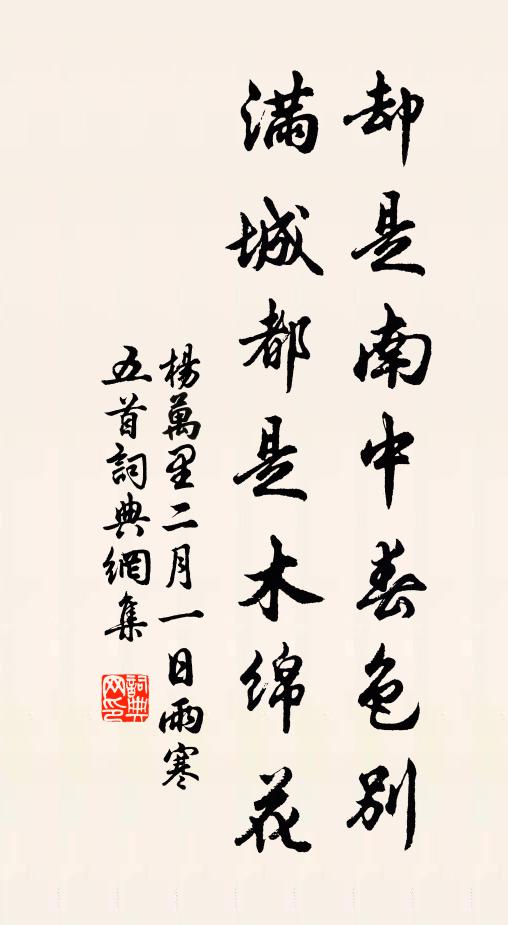 却是南中春色别
满城都是木绵花
楊萬里二月一日雨寒
五首詞典網集
詞典网印